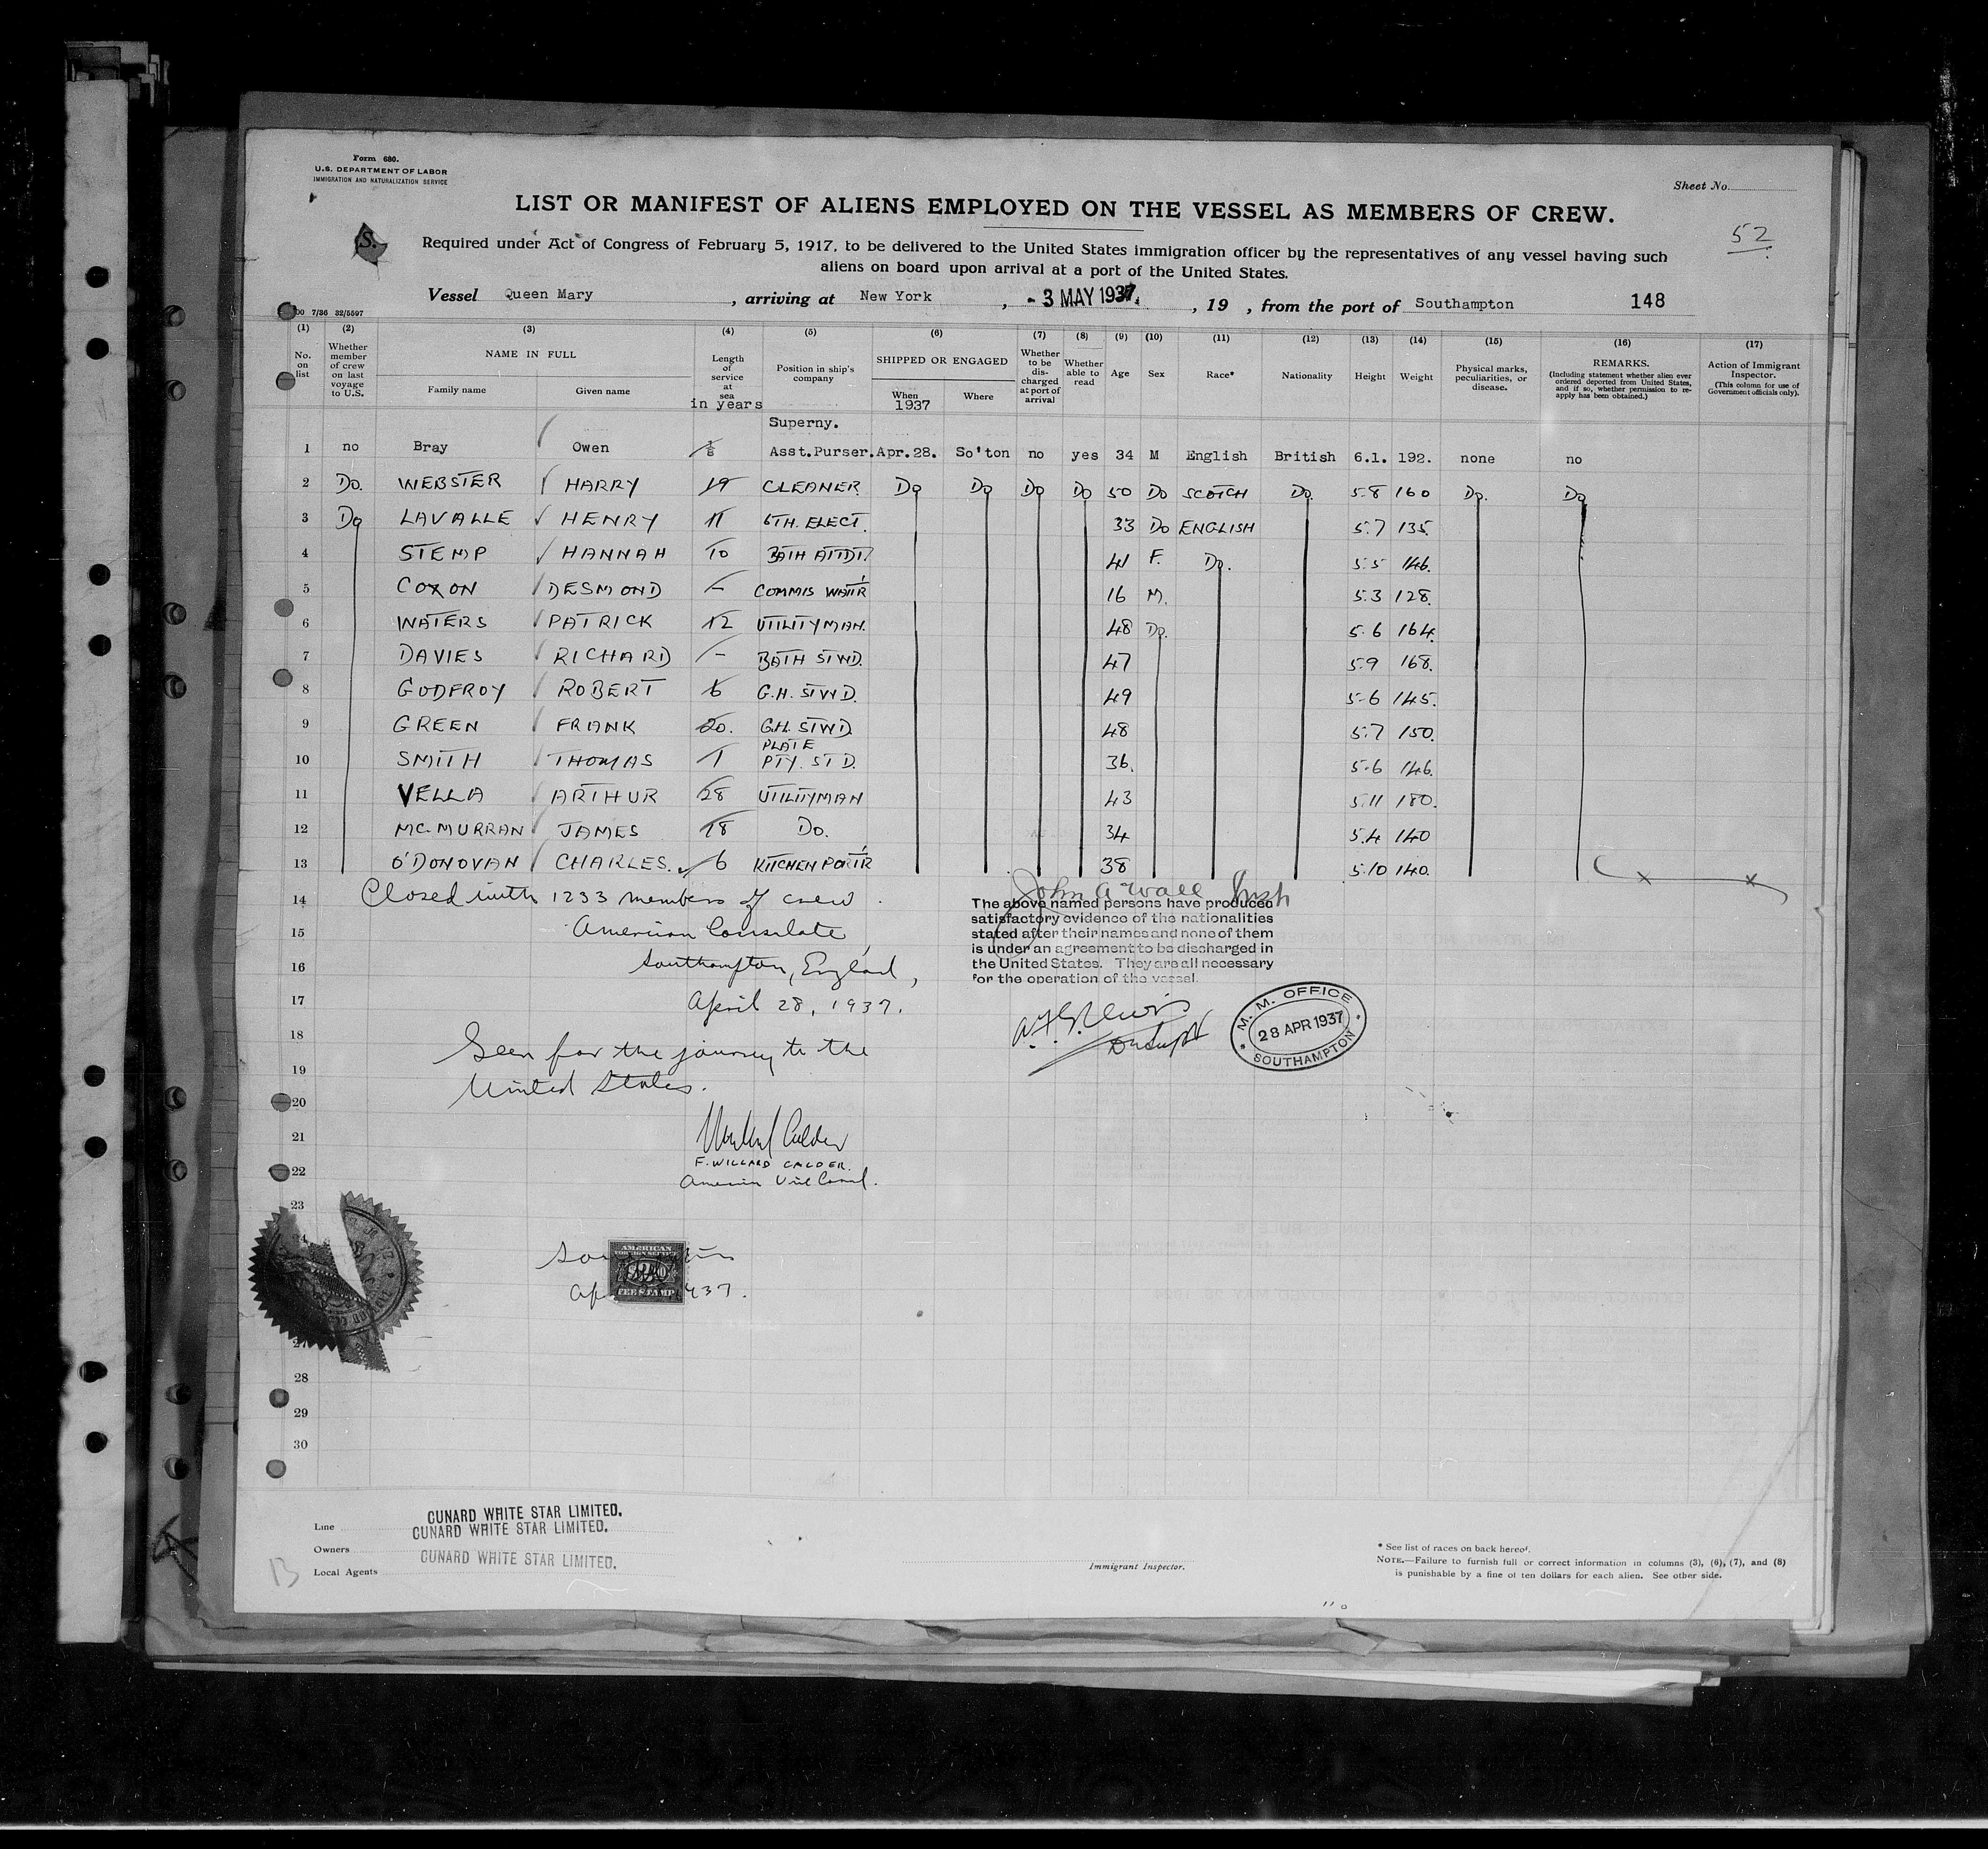 Form 680.
U.S. DEPARTMENT OF LABOR
IMMIGRATION AND NATURALIZATION SERVICE
Sheet No.
LIST OR MANIFEST OF ALIENS EMPLOYED ON THE VESSEL AS MEMBERS OF CREW.
52
S.
Required under Act of Congress of February 5, 1917, to be delivered to the United States immigration officer by the representatives of any vessel having such
aliens on board upon arrival at a port of the United States.
Vessel Queen Mary, arriving at New York, - 3 MAY 1937., 19 , from the port of Southampton 148
7/36 32/5597
(1) (2) (3) (4) (5) (6) (7) (8) (9) (10) (11) (12) (13) (14) (15) (16) (17)
No. on list
Whether member of crew on last voyage to U.S.
NAME IN FULL
Family name Given name
Length of service at sea
in years
Position in ship's company
SHIPPED OR ENGAGED
When Where
1937
Whether to be discharged at port of arrival
Whether able to read
Age
Sex
Race*
Nationality
Height
Weight
Physical marks, peculiarities, or disease.
REMARKS.
(Including statement whether alien ever ordered deported from United States, and if so, whether permission to reapply has been obtained.)
Action of Immigrant Inspector.
(This column for use of Government officials only).
Superny.
1 no Bray Owen Asst.Purser. Apr.28. So'ton no yes 34 M English British 6.1. 192. none no
2 Do. WEBSTER HARRY 19 CLEANER Do Do Do Do 50 Do SCOTCH Do. 5.8 160 Do. Do
3 Do LAVALLE HENRY 11 6TH. ELECT. 33 Do ENGLISH 5.7 135.
4 STEMP HANNAH 10 BATH ATTDT. 41 F. Do. 5.5 146.
5 COXON DESMOND - COMMIS WAITR 16 M. 5.3 128.
6 WATERS PATRICK 12 UTILITYMAN. 48 Do. 5.6 164.
7 DAVIES RICHARD - BATH STWD. 47 5.9 168.
8 GODFROY ROBERT 6 G.H. STWD. 49 5.6 145.
9 GREEN FRANK 20. G.H. STWD 48 5.7 150.
10 SMITH THOMAS 1 PLATE PTY. STD. 36. 5.6 146.
11 VELLA ARTHUR 28 UTILITYMAN 43 5.11 180.
12 MC.MURRAN JAMES 18 Do. 34 5.4 140
13 O'DONOVAN CHARLES. 6 KITCHEN PORTR 38 5.10 140.
14 Closed with 1233 members of crew.
John A Wall Irish
The above named persons have produced
satisfactory evidence of the nationalities
stated after their names and none of them
is under an agreement to be discharged in
the United States. They are all necessary
for the operation of the vessel.
15 American Consulate,
16 Southampton, England,
17 April 28, 1937.
M. M. OFFICE
28 APR 1937
SOUTHAMPTON
18 Seen for the journey to the
19 United States.
20
21
F. WILLARD CALDER.
22 American Vice Consul.
23
AMERICAN
FOREIGN SERVICE
FEE STAMP
28
29
30
Line CUNARD WHITE STAR LIMITED.
CUNARD WHITE STAR LIMITED.
Owners
Local Agents CUNARD WHITE STAR LIMITED.
13
Immigrant Inspector.
* See list of races on back hereof.
NOTE.—Failure to furnish full or correct information in columns (3), (6), (7), and (8)
is punishable by a fine of ten dollars for each alien. See other side.